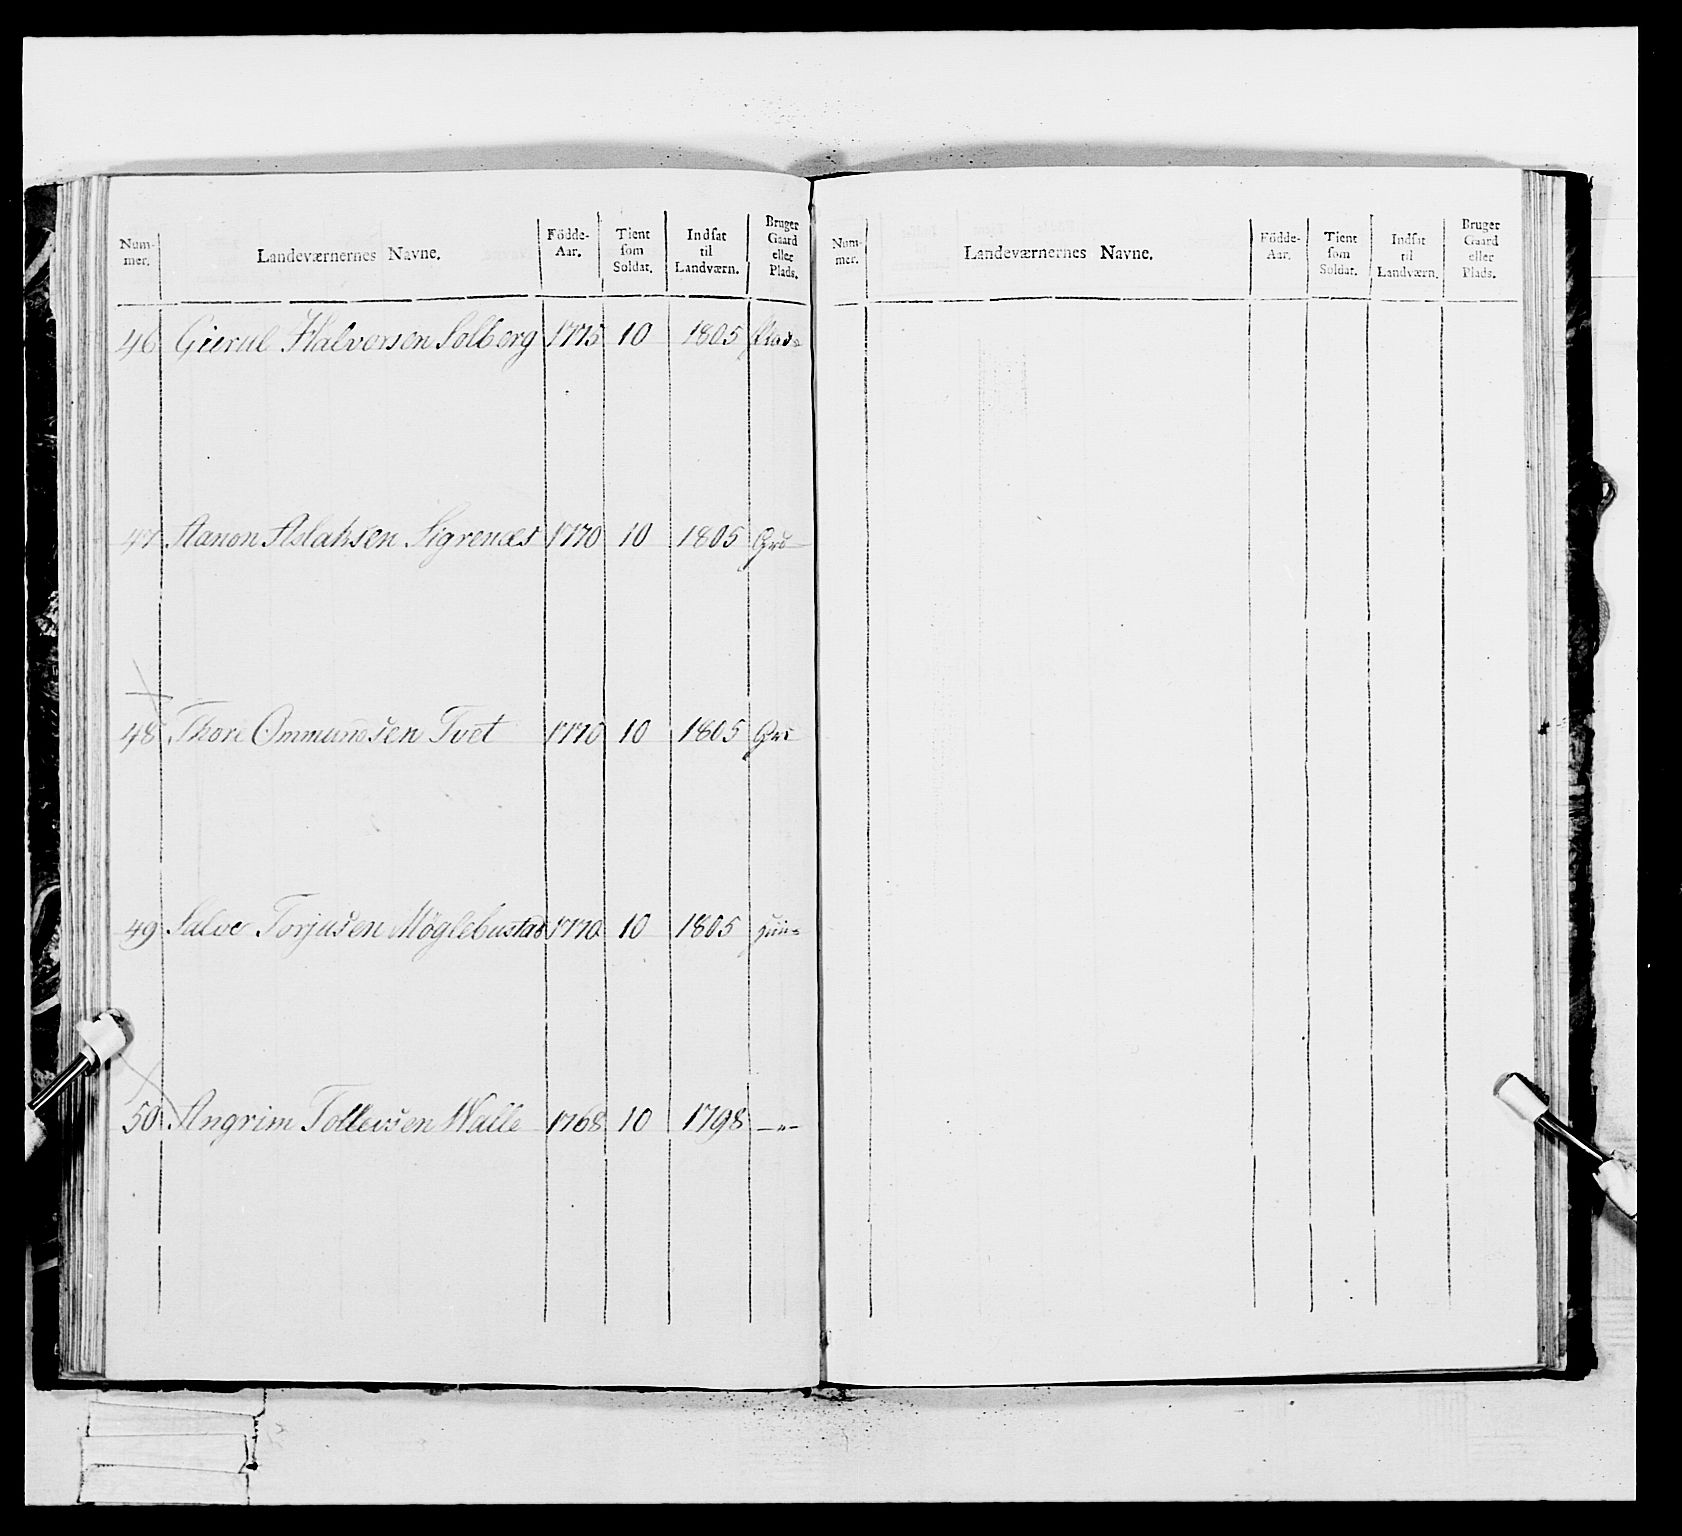 Num-
mer.
Landeværnernes Navne.
Födde-
Aar.
Tient
som
Soldat.
Indsat
til
Landværn.
Bruger
Gaard
eller
Plads.
46 Gierul Halvorsen Solberg 1775 10 1805 Plads
47 Aanon Aslaksen Sigrenæs 1770 10 1805 Grd
48 Thore Ommundsen Tvet 1770 10 1805 Grd
49 Salve Torjusen Möglebustad 1770 10 1805
50 Angrim Tollevsen Walle 1768 10 1798 —"—
Num-
mer.
Landeværnernes Navne.
Födde-
Aar.
Tient
som
Soldat.
Indsat
til
Landværn.
Bruger
Gaard
eller
Plads.